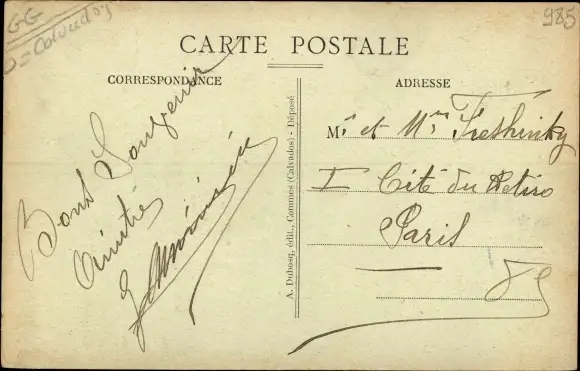 GG
D = Calvados
985
CARTE POSTALE
CORRESPONDANCE
Bons Souvenirs
Amitiés
A. Dubosq, édit., Commes (Calvados) - Déposé
ADRESSE
Mr et Mme
1 Cité du Retiro
Paris